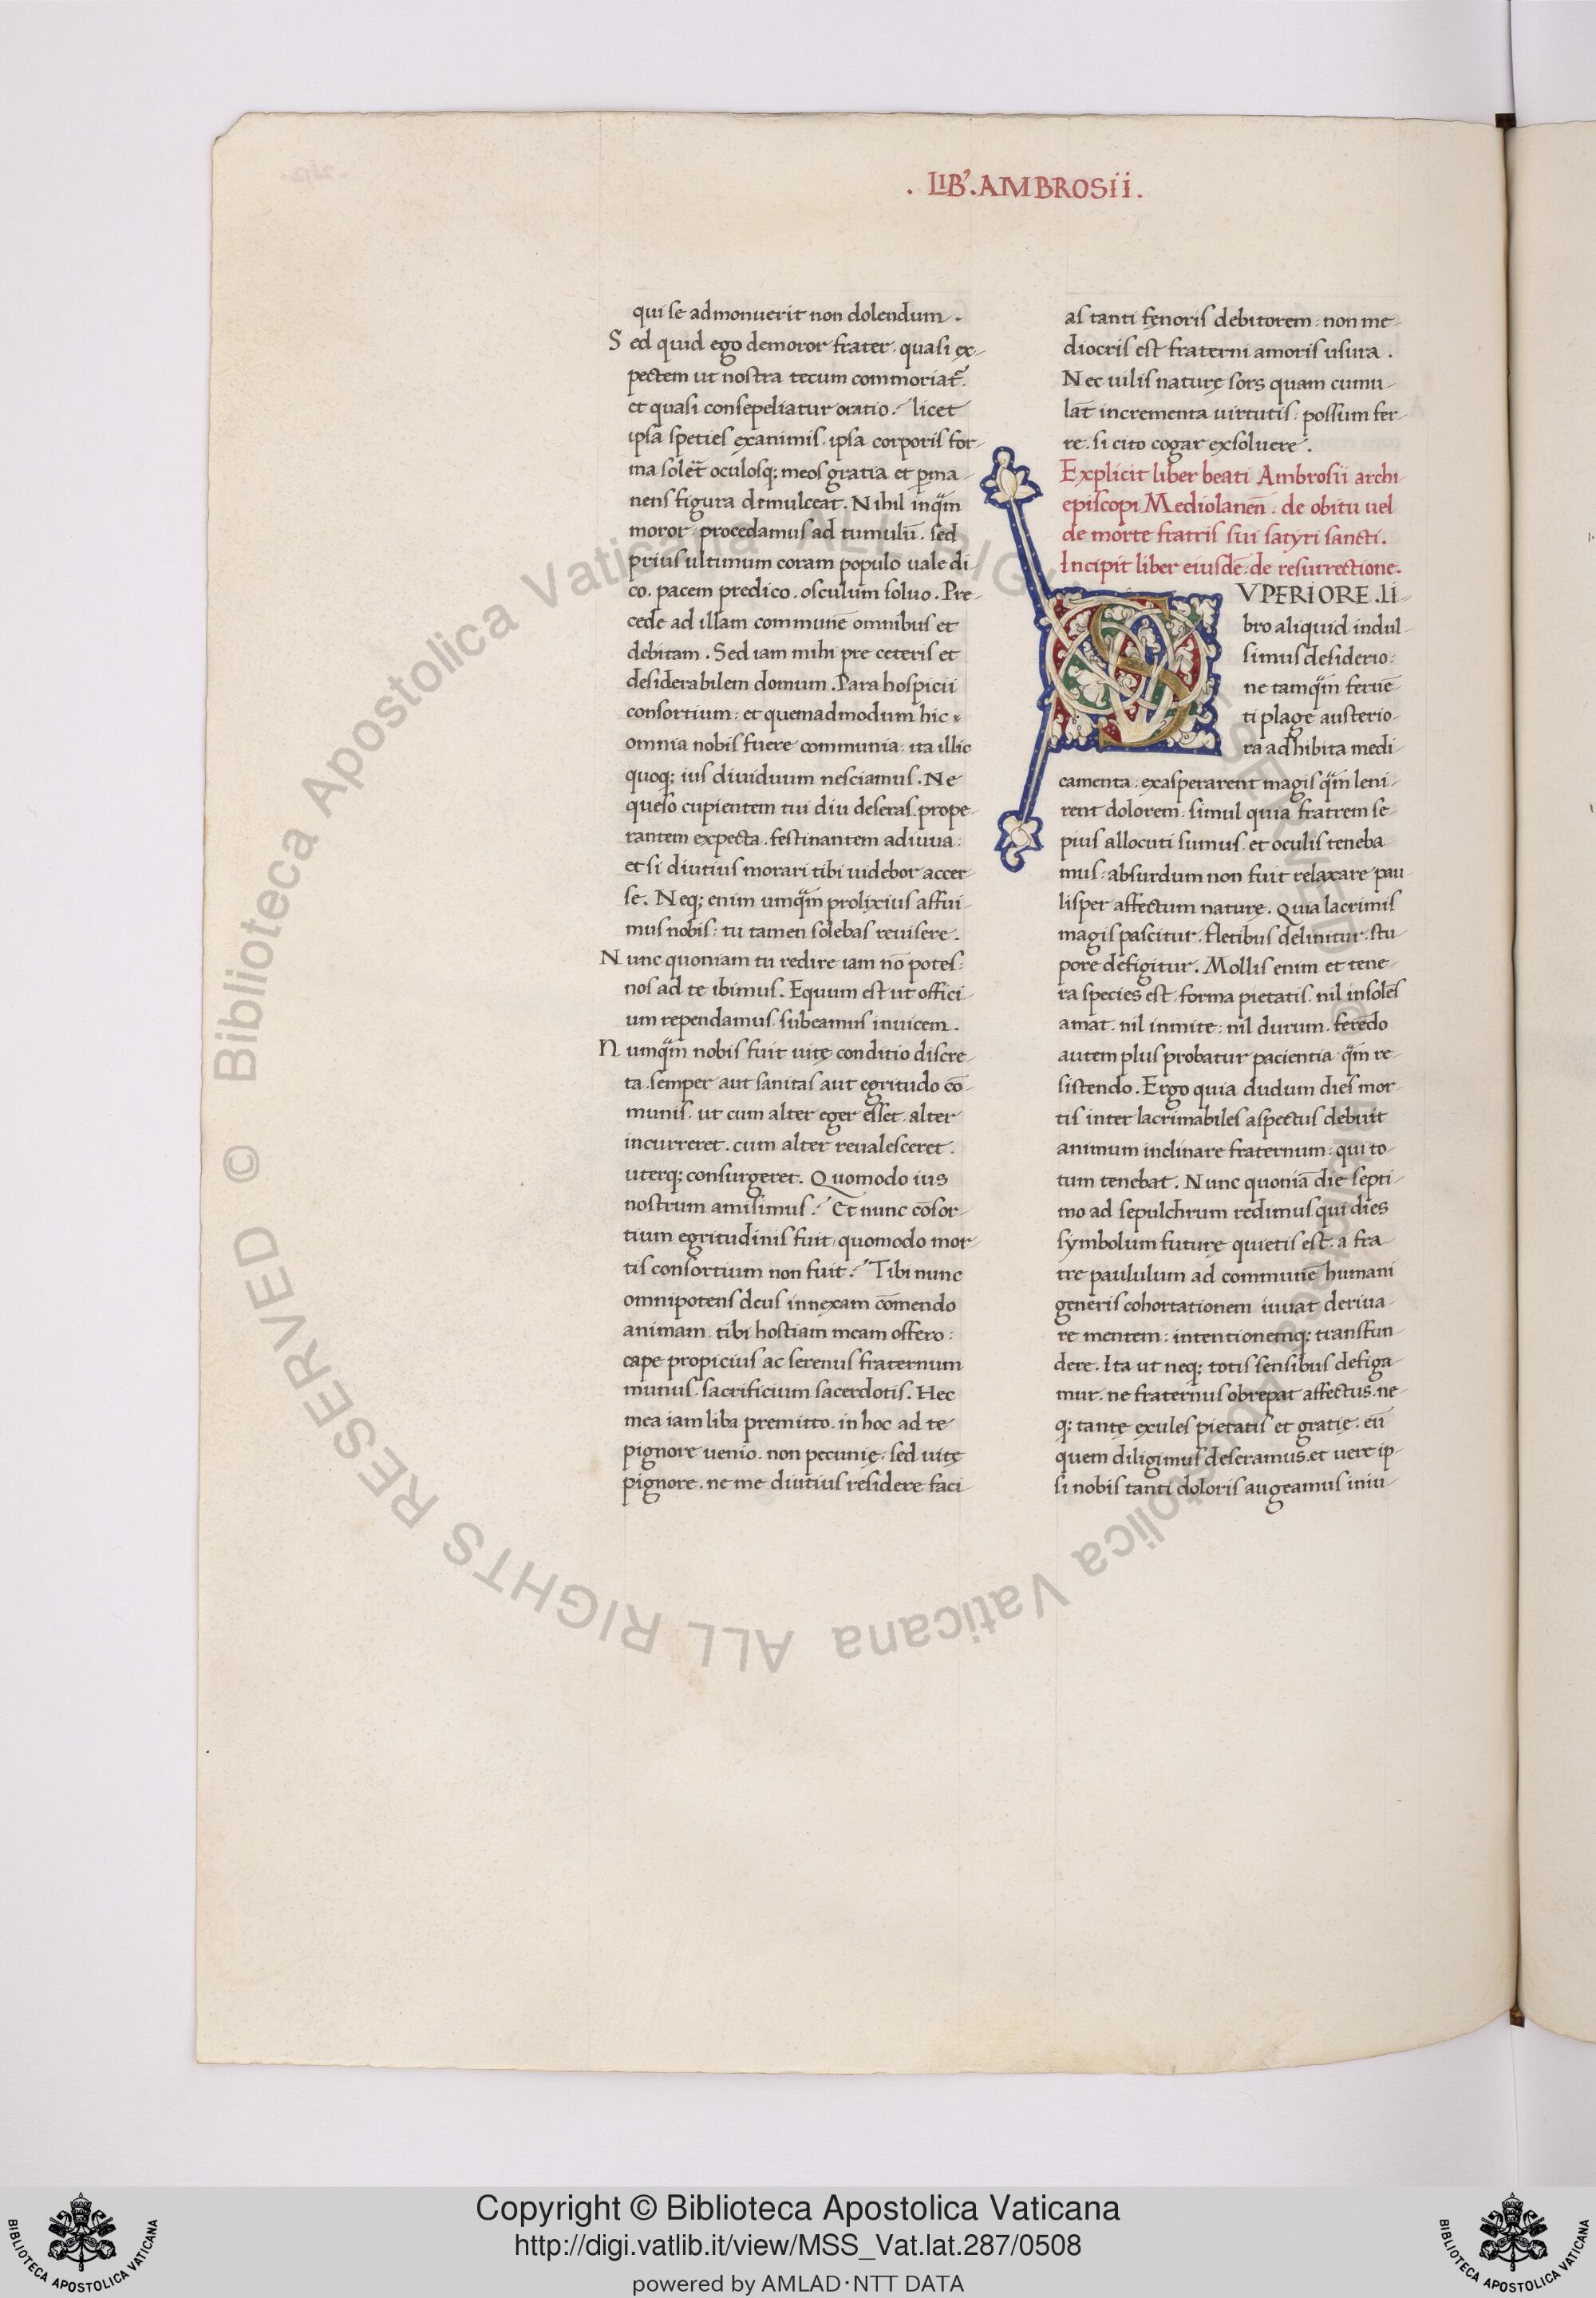 . LIB’. AMBROSii .
qui se admonuerit non dolendum .
Sed quid ego demoror frater . quasi ex-
pectem ut nostra tecum commoriat᷑.
et quasi consepeliatur oratio ? licet
ipsa speties exanimis . ipsa corporis for-
ma solet̄ oculosq; meos gratia et p̄ma-
nens figura demulceat . Nihil inq̄m
moror . procedamus ad tumulū . sed
prius ultimum coram populo uale di
co . pacem predico . osculum soluo . Pre-
cede ad illam communē omnibus et
debitam . Sed iam mihi pre ceteris et
desiderabilem domum . Para hospicii
consortium : et quemadmodum hic
omnia nobis fuere communia : ita illic
quoq; ius diuiduum nesciamus . Ne
queso cupientem tui diu deseras . prope-
rantem expecta . festinantem adiuua :
et si diutius morari tibi uidebor accer-
se . Neq; enim umq̄m prolixius affui-
mus nobis : tu tamen solebas reuisere .
Nunc quoniam tu redire iam nō potes :
nos ad te ibimus . Equum est ut offici-
um rependamus . subeamus inuicem .
Numq̄m nobis fuit uitę conditio discre-
ta . semper aut sanitas aut egritudo cō-
munis . ut cum alter eger esset . alter
incurreret . cum alter reualesceret .
uterq; consurgeret . Quomodo ius
nostrum amisimus ? Et nunc cōsor-
tium egritudinis fuit . quomodo mor-
tis consortium non fuit ? Tibi nunc
omnipotens deus innexam cōmendo
animam . tibi hostiam meam offero :
cape propicius ac serenus fraternum
munus . sacrificium sacerdotis . Hec
mea iam liba premitto . in hoc ad te
pignore uenio . non pecunię . sed uitę
pignore . ne me diutius residere faci-
as tanti fenoris debitorem : non me-
diocris est fraterni amoris usura .
Nec uilis naturę sors quam cumu-
lāt incrementa uirtutis : possum fer-
re . si cito cogar exsoluere .
Explicit liber beati Ambrosii archi-
episcopi Mediolaneñ . de obitu uel
de morte fratris sui satyri sancti .
Incipit liber eiusdē . de resurrectione .
SVPERIORE . li-
bro aliquid indul-
simus desiderio :
ne tamq̄m feruē-
ti plage austerio-
ra adhibita medi-
camenta : exasperarent magis q̄m leni-
rent dolorem : simul quia fratrem se-
pius allocuti sumus . et oculis teneba-
mus : absurdum non fuit relaxare pau
lisper affectum naturę . Quia lacrimis
magis pascitur . fletibus delinitur . stu-
pore defigitur . Mollis enim et tene-
ra species est . forma pietatis . nil insolēs
amat . nil inmite : nil durum . feredo
autem plus probatur pacientia . q̄m re-
sistendo . Ergo quia dudum dies mor-
tis inter lacrimabiles aspectus debuit
animum inclinare fraternum : qui to-
tum tenebat . Nunc quoniā die septi-
mo ad sepulchrum redimus . qui dies
symbolum futurę quietis est . a fra-
tre paululum ad communē humani
generis cohortationem iuuat deriua-
re mentem : intentionemq; transfun-
dere . Ita ut neq; totis sensibus defiga-
mur . ne fraternus obrepat affectus . ne-
q; tantę exules pietatis et gratię . eū
quem diligimus deseramus . et uere ip-
si nobis tanti doloris augeamus iniu-
© Biblioteca Apostolica Vaticana ALL RIGHTS RESERVED
© Biblioteca Apostolica Vaticana ALL RIGHTS RESERVED
Copyright © Biblioteca Apostolica Vaticana
http://digi.vatlib.it/view/MSS_Vat.lat.287/0508
powered by AMLAD·NTT DATA
BIBLIOTECA APOSTOLICA VATICANA
BIBLIOTECA APOSTOLICA VATICANA